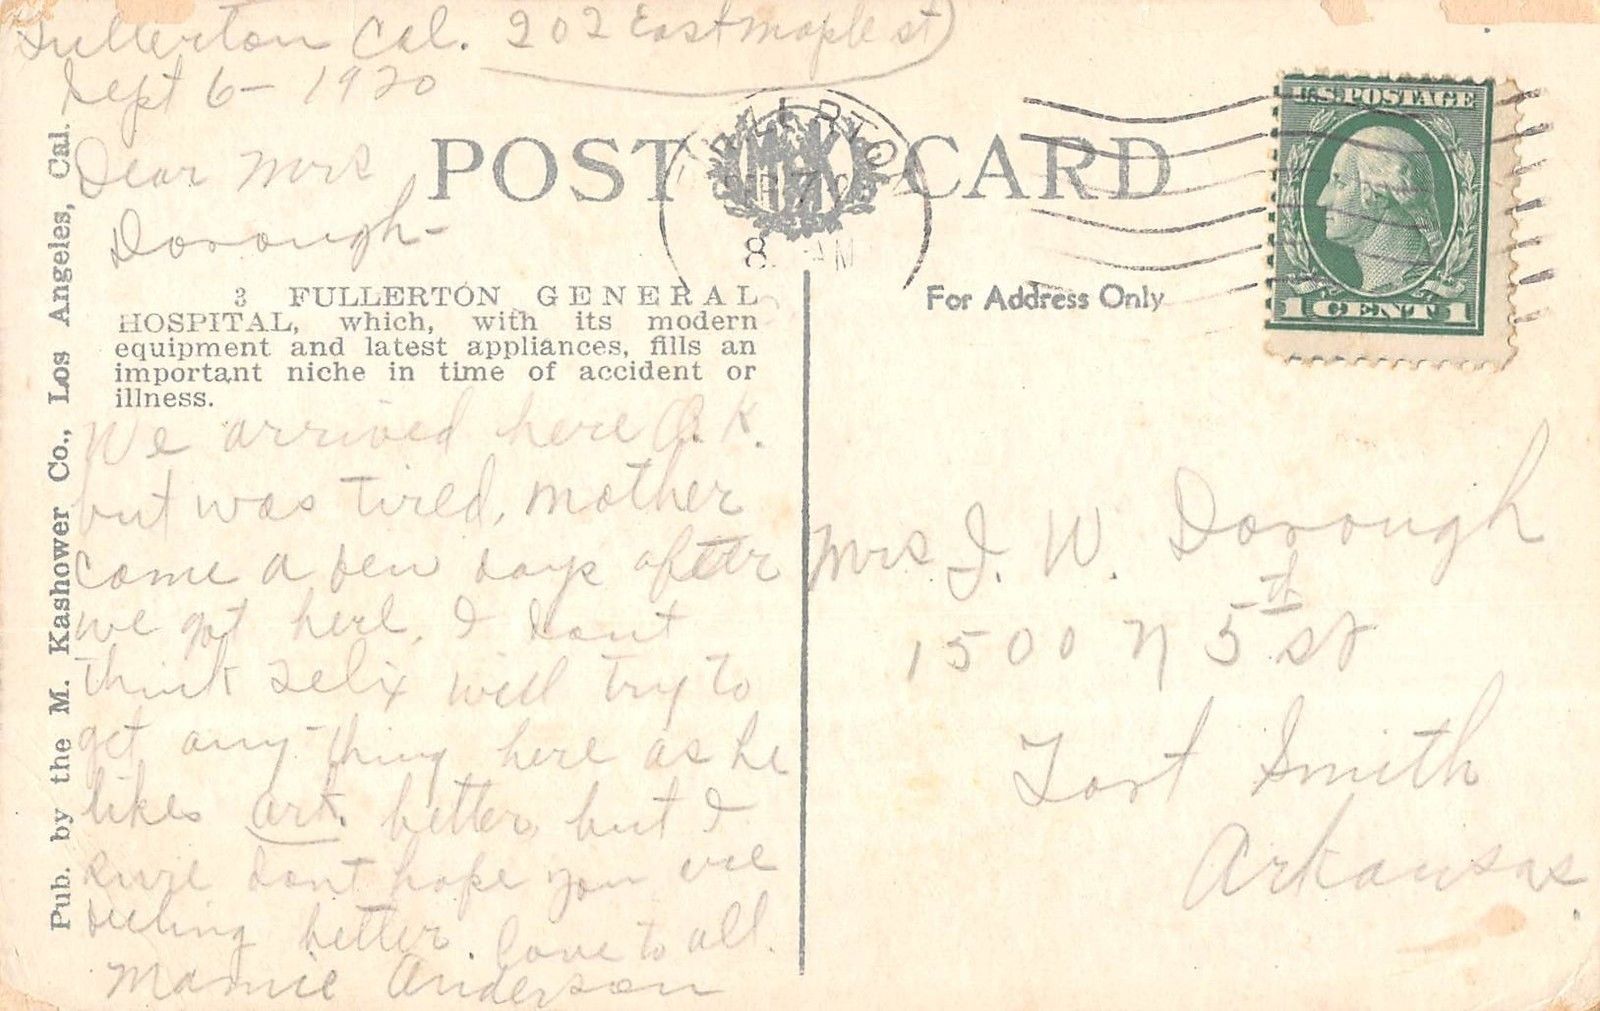 Fullerton Cal. 202 East Maple st)
Sept 6 - 1920
Dear Mrs
Dorough -
POST CARD
8 AM
U.S. POSTAGE
1 CENT 1
For Address Only
3 FULLERTON GENERAL
HOSPITAL, which, with its modern
equipment and latest appliances, fills an
important niche in time of accident or
illness.
We arrived here O.K.
but was tired, mother
come a few days after
we got here. I dont
think Felix will try to
get any-thing here as he
likes Ark. better, but I
sure dont hope you are
feeling better. Love to all.
Mamie Anderson
Pub. by the M. Kashower Co., Los Angeles, Cal.
Mrs J. W. Dorough
1500 N 5th St
Fort Smith
Arkansas.